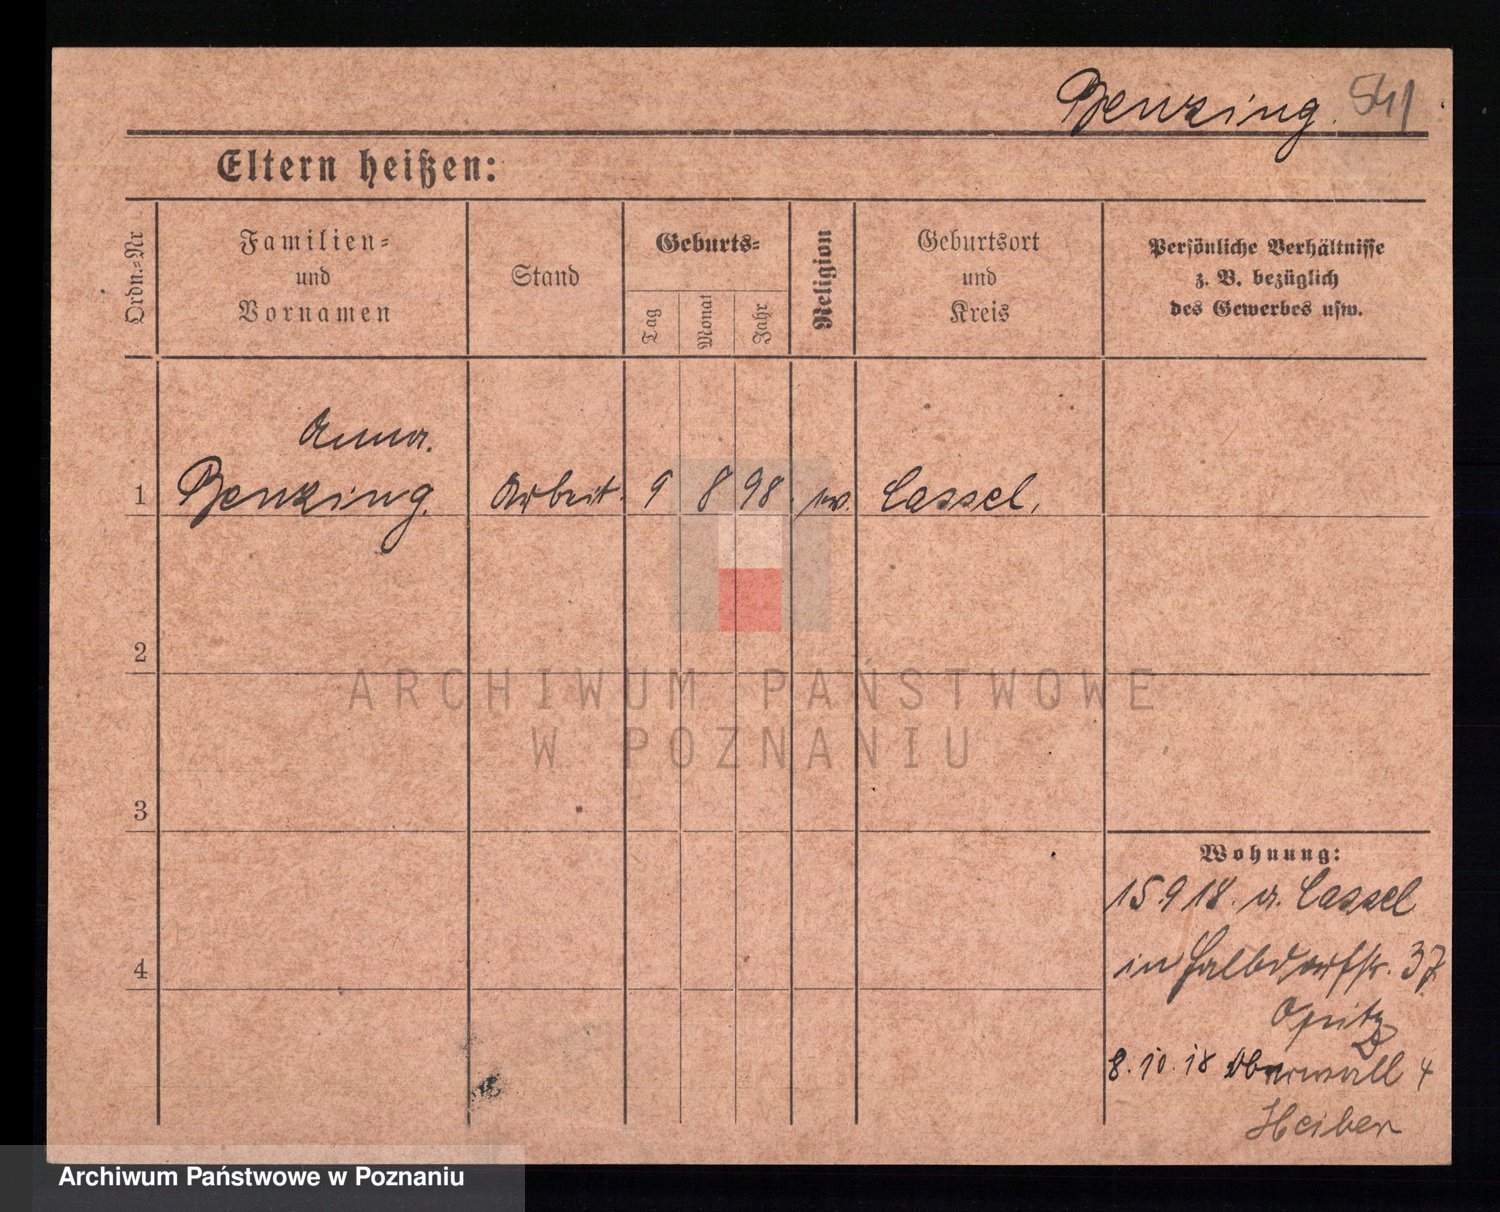 Benzing. 541
Eltern heißen:
Ordn.=Nr
Familien=
und
Vornamen
Stand
Geburts=
Tag
Monat
Jahr
Religion
Geburtsort
und
Kreis
Persönliche Verhältnisse
z. B. bezüglich
des Gewerbes usw.
Anna.
1 Benzing. Arbeit. 9 8 98. ev. Cassel.
2
3
4
Wohnung:
15.9 18. a. Cassel
in Halbdorfstr. 37
Opitz
8. 10. 18 Oberwall 4
Heiber
ARCHIWUM PAŃSTWOWE
W POZNANIU
Archiwum Państwowe w Poznaniu